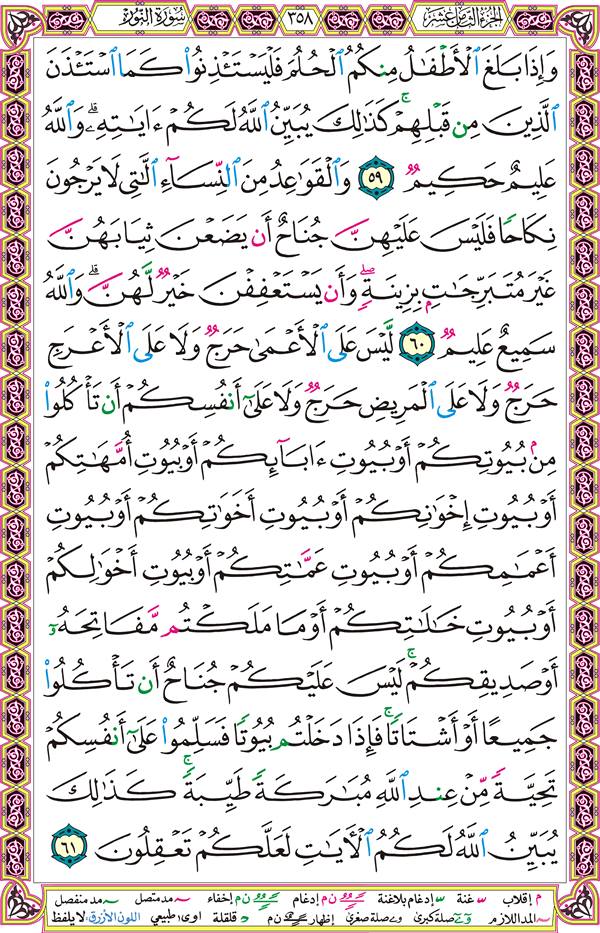 الجزء الثامن عشر ٣٥٨ سورة النور
وَإِذَا بَلَغَ ٱلْأَطْفَٰلُ مِنكُمُ ٱلْحُلُمَ فَلْيَسْتَـْٔذِنُوا۟ كَمَا ٱسْتَـْٔذَنَ
ٱلَّذِينَ مِن قَبْلِهِمْ ۚ كَذَٰلِكَ يُبَيِّنُ ٱللَّهُ لَكُمْ ءَايَٰتِهِۦ ۗ وَٱللَّهُ
عَلِيمٌ حَكِيمٌ ٥٩ وَٱلْقَوَٰعِدُ مِنَ ٱلنِّسَآءِ ٱلَّٰتِى لَا يَرْجُونَ
نِكَاحًا فَلَيْسَ عَلَيْهِنَّ جُنَاحٌ أَن يَضَعْنَ ثِيَابَهُنَّ
غَيْرَ مُتَبَرِّجَٰتٍۭ بِزِينَةٍ ۖ وَأَن يَسْتَعْفِفْنَ خَيْرٌ لَّهُنَّ ۗ وَٱللَّهُ
سَمِيعٌ عَلِيمٌ ٦٠ لَّيْسَ عَلَى ٱلْأَعْمَىٰ حَرَجٌ وَلَا عَلَى ٱلْأَعْرَجِ
حَرَجٌ وَلَا عَلَى ٱلْمَرِيضِ حَرَجٌ وَلَا عَلَىٰٓ أَنفُسِكُمْ أَن تَأْكُلُوا۟
مِنۢ بُيُوتِكُمْ أَوْ بُيُوتِ ءَابَآئِكُمْ أَوْ بُيُوتِ أُمَّهَٰتِكُمْ
أَوْ بُيُوتِ إِخْوَٰنِكُمْ أَوْ بُيُوتِ أَخَوَٰتِكُمْ أَوْ بُيُوتِ
أَعْمَٰمِكُمْ أَوْ بُيُوتِ عَمَّٰتِكُمْ أَوْ بُيُوتِ أَخْوَٰلِكُمْ
أَوْ بُيُوتِ خَٰلَٰتِكُمْ أَوْ مَا مَلَكْتُم مَّفَاتِحَهُۥٓ
أَوْ صَدِيقِكُمْ ۚ لَيْسَ عَلَيْكُمْ جُنَاحٌ أَن تَأْكُلُوا۟
جَمِيعًا أَوْ أَشْتَاتًا ۚ فَإِذَا دَخَلْتُم بُيُوتًا فَسَلِّمُوا۟ عَلَىٰٓ أَنفُسِكُمْ
تَحِيَّةً مِّنْ عِندِ ٱللَّهِ مُبَٰرَكَةً طَيِّبَةً ۚ كَذَٰلِكَ
يُبَيِّنُ ٱللَّهُ لَكُمُ ٱلْءَايَٰتِ لَعَلَّكُمْ تَعْقِلُونَ ٦١
م إقلاب غنة إدغام بلاغنة ن م إدغام ن م إخفاء مد متصل مد منفصل
المد اللازم صلة كبرى صلة صغرى إظهار ن م قلقلة اوى طبيعي اللون الأزرق: لا يلفظ